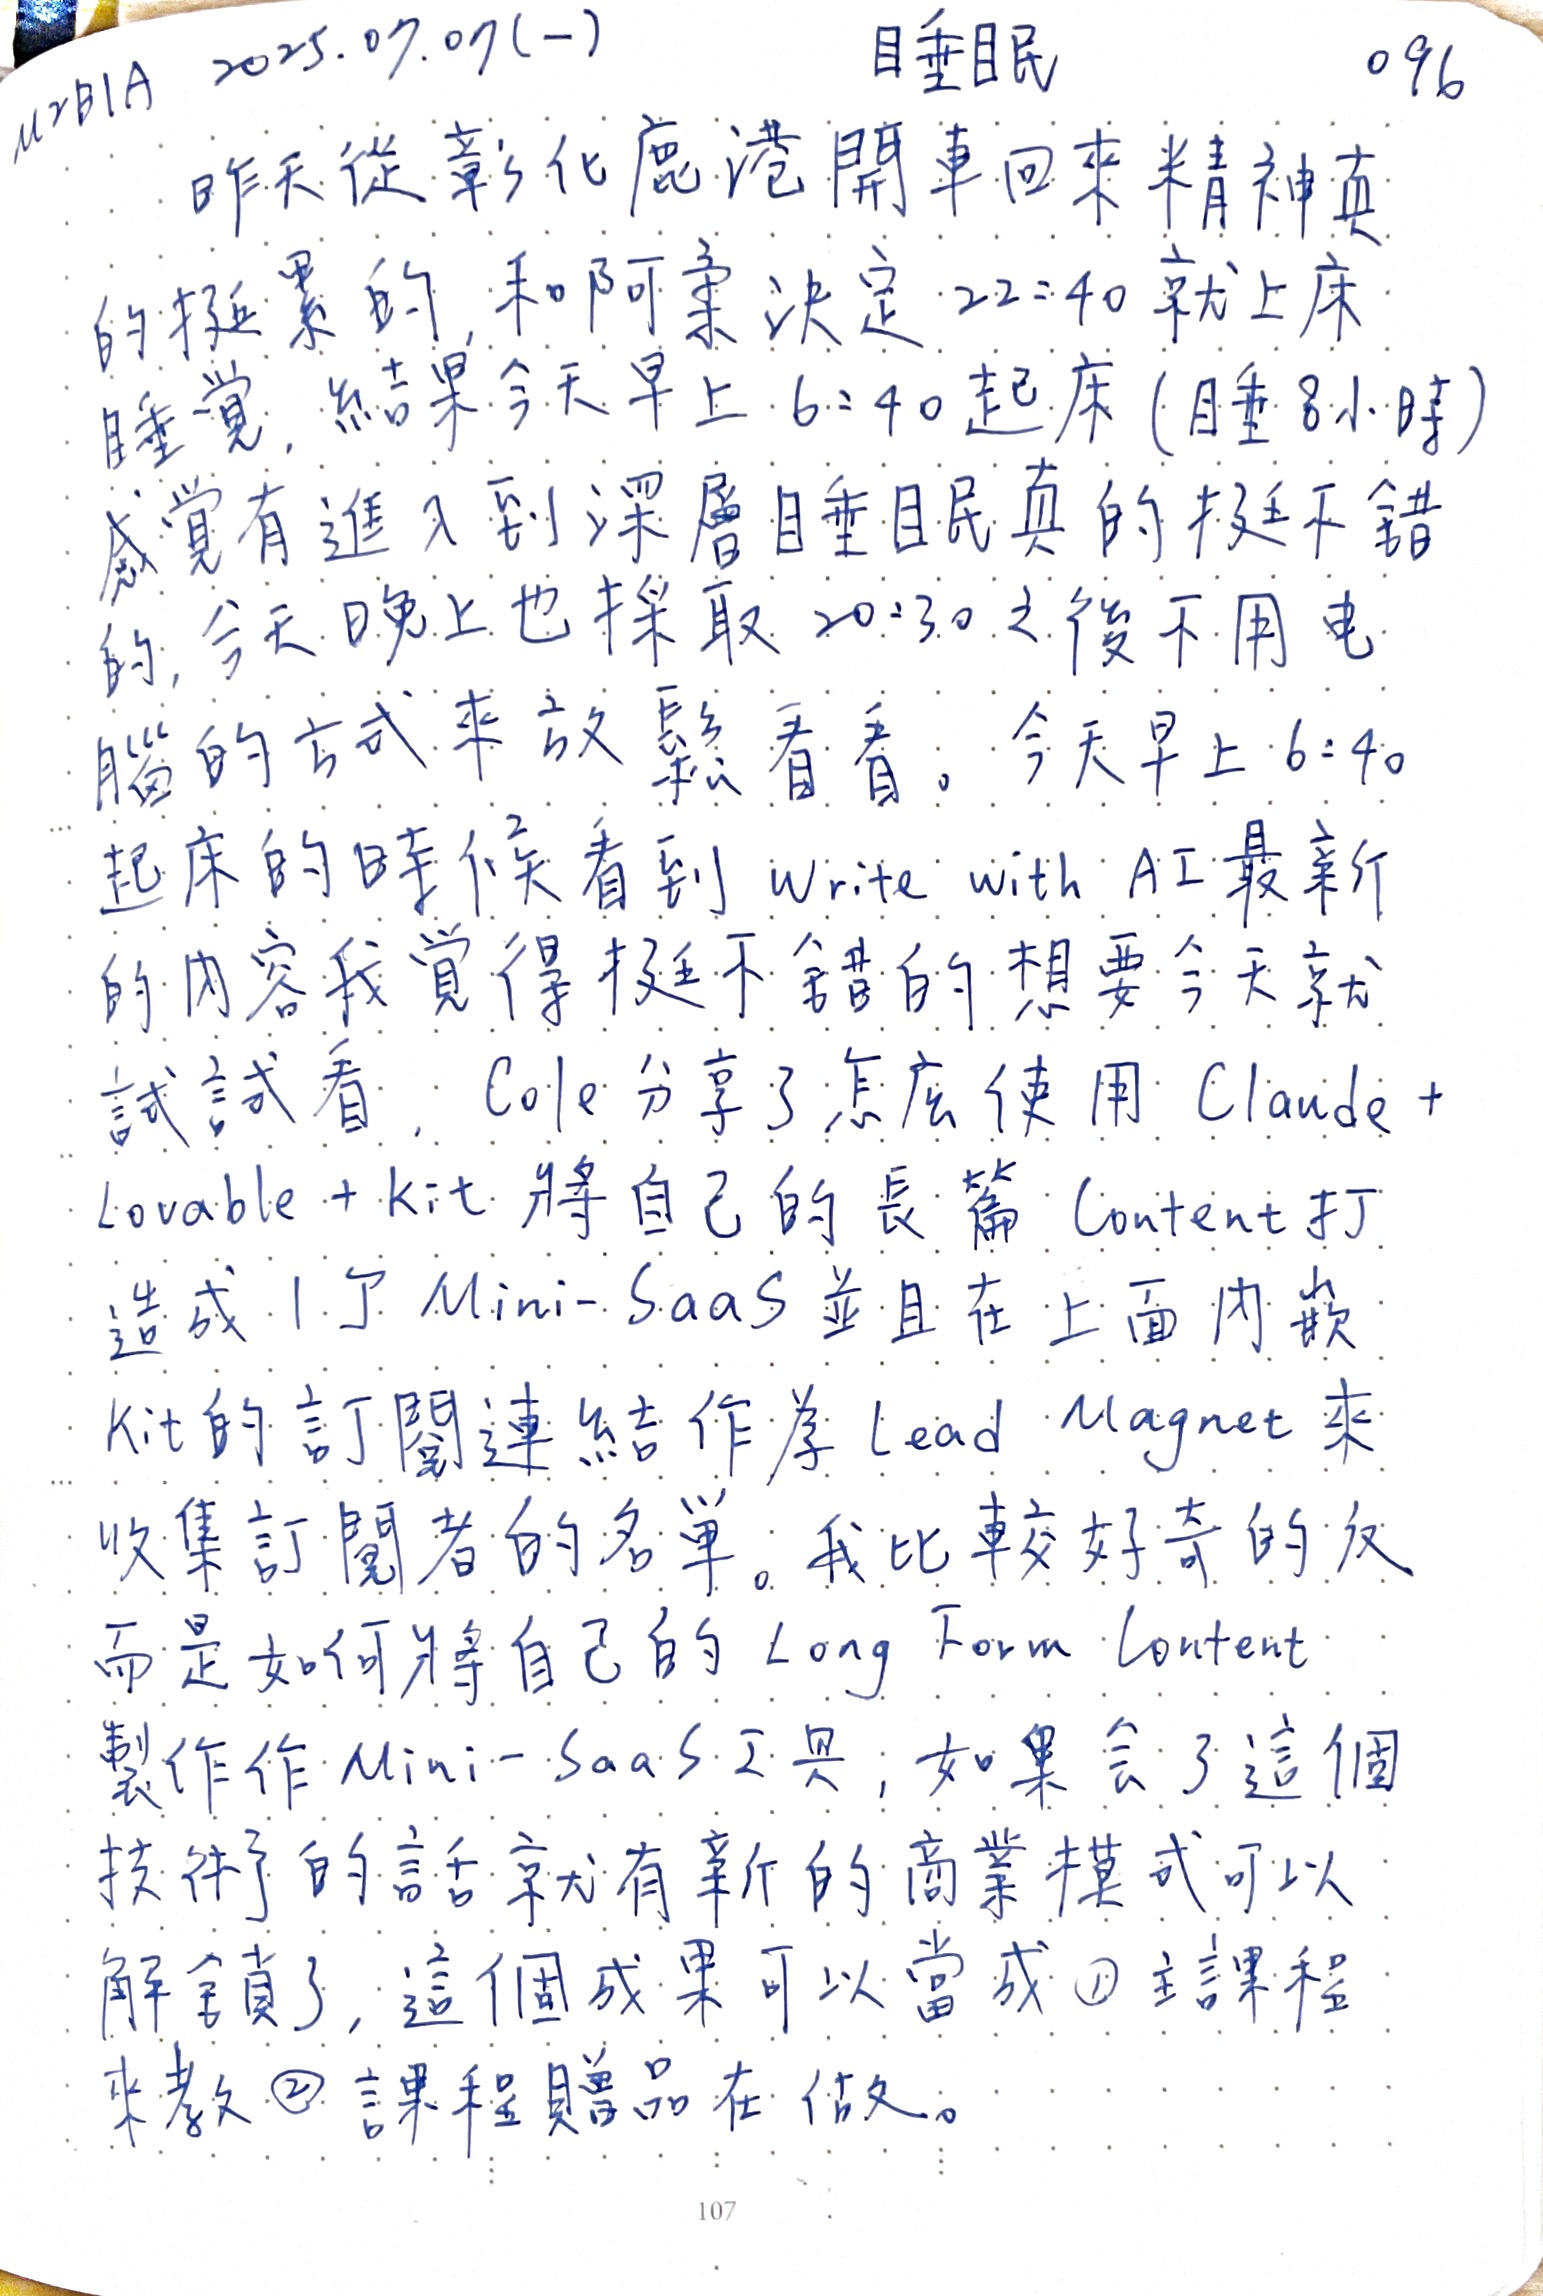 M2B1A 2025.07.07(一) 睡眠 096
昨天從彰化鹿港開車回來精神真
的挺累的,和阿柔決定22:40就上床
睡覚,結果今天早上6:40起床(睡8小時)
感覚有進入到深層睡眠真的挺不錯
的,今天晚上也採取20:30之後不用电
腦的方式來放鬆看看。今天早上6:40
起床的時候看到Write with AI最新
的內容我覚得挺不錯的想要今天就
試試看,Cole分享了怎庅使用Claude+
Lovable+Kit將自己的長篇Content打
造成1个Mini-SaaS並且在上面內嵌
Kit的訂閱連結作為Lead Magnet來
收集訂閱者的名単。我比較好奇的反
而是如何將自己的Long Form Content
製作作Mini-SaaS工具,如果会了這個
技術的話就有新的商業模式可以
解鎖了,這個成果可以當成①主課程
來教②課程贈品在做。
107